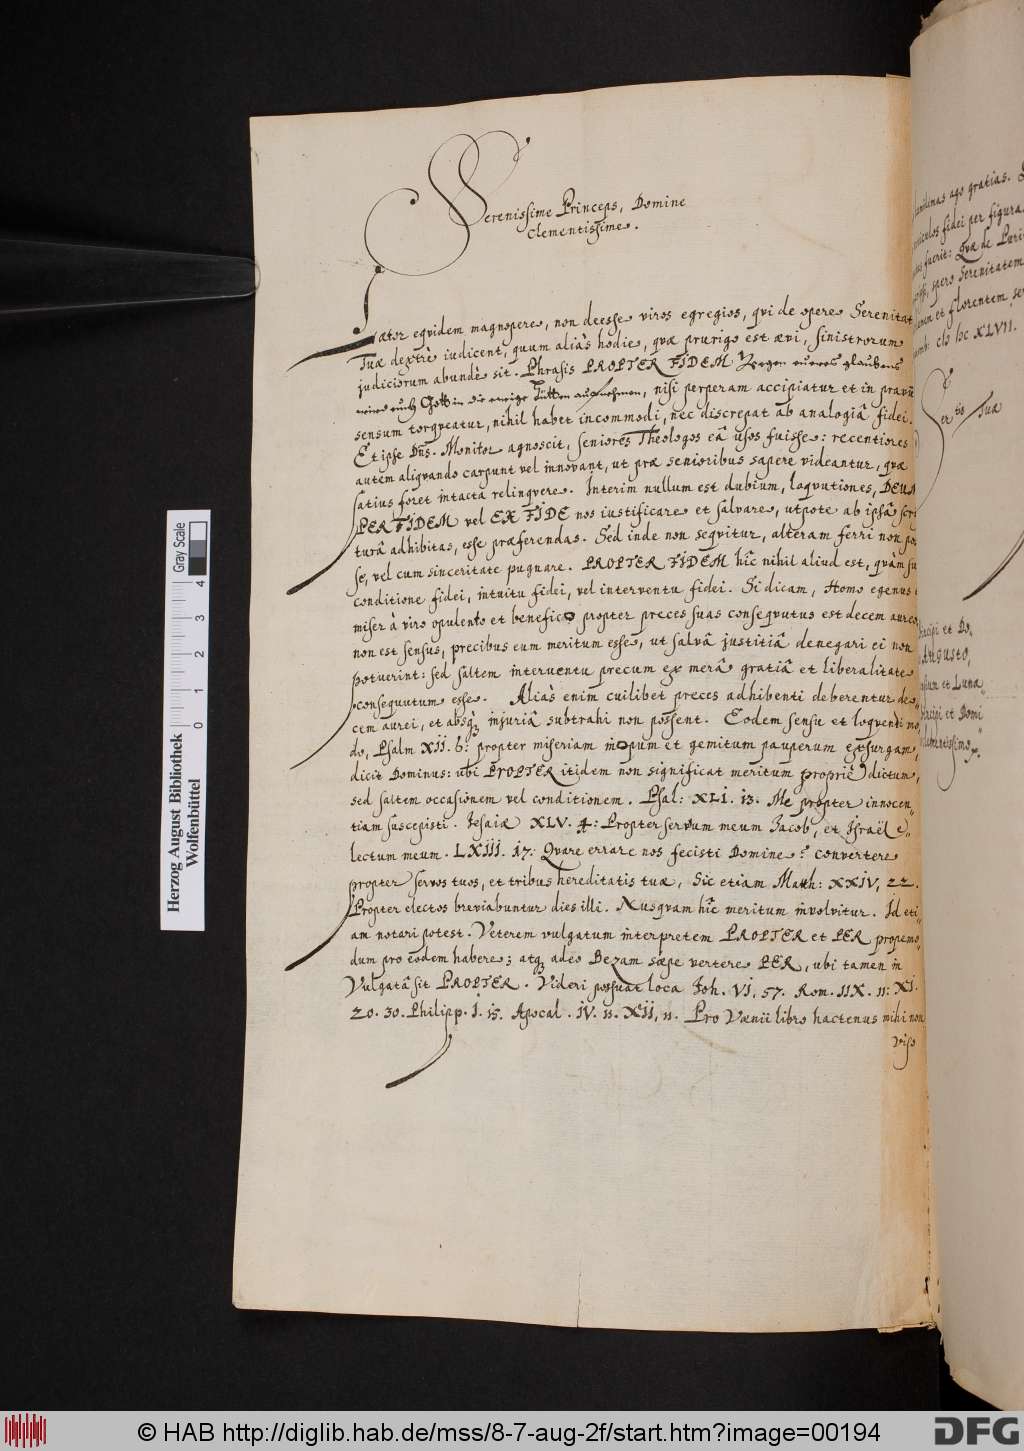 Serenissime Princeps, Domine
Clementissime.
Lætor eqvidem magnopere, non deesse viros egregios, qvi de opere Serenitat
Tuæ dextrè iudicent, quum aliàs hodie, qvæ prurigo est ævi, sinistrorum
judiciorum abundè sit. Phrasis PROPTER FIDEM Wegen eueres glaubens
wird euch Gott in die ewige Hütten aufnehmen, nisi perperam accipiatur et in pravũ
sensum torqveatur, nihil habet incommodi, nec discrepat ab analogiâ fidei.
Et ipse Dñs. Monitor agnoscit, seniores Theologos eâ usos fuisse: recentiores
autem aliqvando carpunt vel innovant, ut præ senioribus sapere videantur, qvæ
satius foret intacta relinqvere. Interim nullum est dubium, loqvutiones, DEUM
PER FIDEM vel EX FIDE nos iustificare et salvare, utpote ab ipsâ scri
turâ adhibitas, esse præferendas. Sed inde non seqvitur, alteram ferri non pos
se, vel cum sinceritate pugnare. PROPTER FIDEM hîc nihil aliud est, qvàm su
conditione fidei, intuitu fidei, vel interventu fidei. Si dicam, Homo egenus
miser à viro opulento et benefico propter preces suas conseqvutus est decem aureo
non est sensus, precibus eum meritum esse, ut salvâ justitiâ denegari ei non
potuerint: sed saltem interventu precum ex merâ gratiâ et liberalitate
consequutum esse. Aliàs enim cuilibet preces adhibenti deberentur de„
cem aurei, et absq; injuriâ subtrahi non possent. Eodem sensu et loqvendi mo„
do, Psalm XII. 6: propter miseriam inopum et gemitum pauperum exsurgam,
dicit Dominus: ubi PROPTER itidem non significat meritum propriè dictum,
sed saltem occasionem vel conditionem. Psal: XLI. 13. Me propter innocen„
tiam suscepisti. Iesaiæ XLV. 4: Propter servum meum Jacob, et Israël e„
lectum meum. LXIII. 17: Qvare errare nos fecisti Domine? convertere
propter servos tuos, et tribus hereditatis tuæ, Sic etiam Matth: XXIV, 22.
Propter electos breviabuntur dies illi. Nusqvam hîc meritum involvitur. Id eti„
am notari potest. Veterem vulgatum interpretem PROPTER et PER propemo„
dum pro eodem habere; atq; adeo Bezam sæpe vertere PER, ubi tamen in
Vulgatâ sit PROPTER. Videri possunt loca Joh. VI, 57. Rom. IIX. 11: XI.
20. 30. Philipp. I. 15. Apocal. IV. 11. XII, 11. Pro Vænii libro hactenus mihi non
viso
ago gratias.
fidei per figura
fuerit: Qvæ de
spero Serenitatem
et florentem
clↄ lↄc XLVII.
Ser.tis Tuæ
et Do„
Augusto,
et Luna„
et Domi
Herzog August Bibliothek
Wolfenbüttel
0 1 2 3 4
Gray Scale
© HAB http://diglib.hab.de/mss/8-7-aug-2f/start.htm?image=00194
DFG